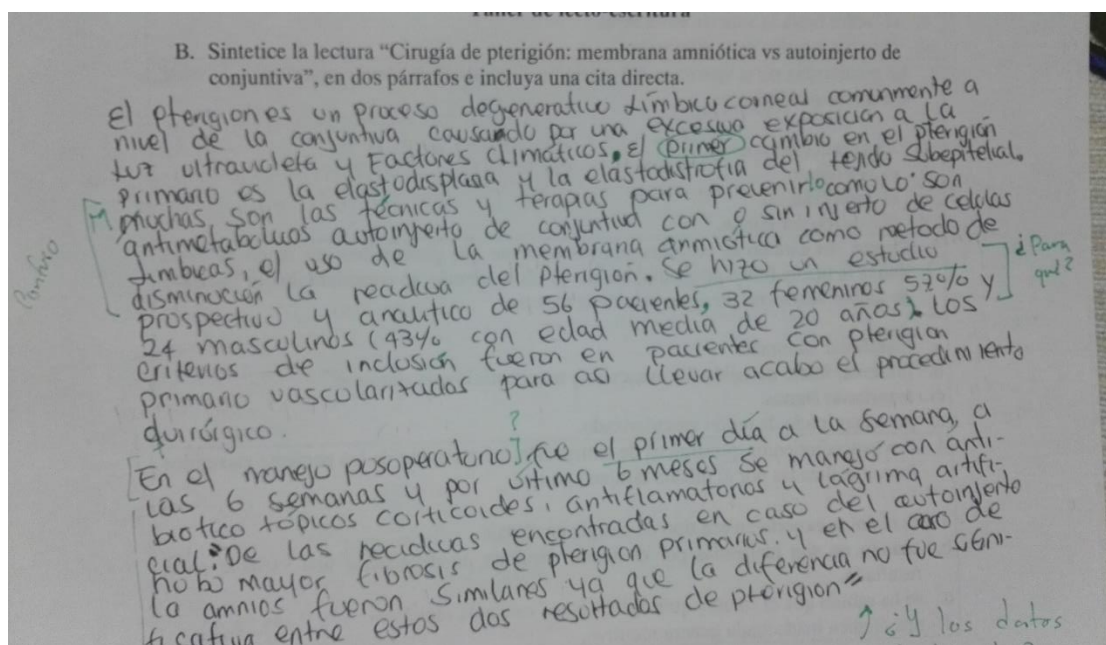 B. Sintetice la lectura “Cirugía de pterigión: membrana amniótica vs autoinjerto de
conjuntiva”, en dos párrafos e incluya una cita directa.
El pterigion es un proceso degenerativo límbico corneal comunmente a
nivel de la conjuntiva causando por una excesiva exposición a la
luz ultravioleta y Factores climáticos. El primer cambio en el pterigión
primario es la elastodisplasia y la elastodistrofia del tejido subepitelial.
Muchas son las técnicas y terapias para prevenirlo como lo son
antimetabolicos autoinjerto de conjuntiva con o sin injerto de celulas
limbicas, el uso de la membrana amniótica como metodo de
disminución la recidiva del pterigión. Se hizo un estudio
¿Para
qué?
prospectivo y analitico de 56 pacientes, 32 femeninos 57% y
24 masculinos (43% con edad media de 20 años). Los
criterios de inclusión fueron en pacientes con pterigion
primario vascularizados para llevar acabo el procedimiento
quirúrgico.
?
[En el manejo posoperatorio] fue el primer día a la semana, a
las 6 semanas y por último 6 meses se manejó con anti-
biotico tópicos corticoides, antiflamatorios y lágrima artifi-
cial: De las recidivas encontradas en caso del autoinjerto
hubo mayor fibrosis de pterigion primarios. y en el caso de
la amnios fueron similares ya que la diferencia no fue signi-
ficativa entre estos dos resultados de pterigion”
¿Y los datos